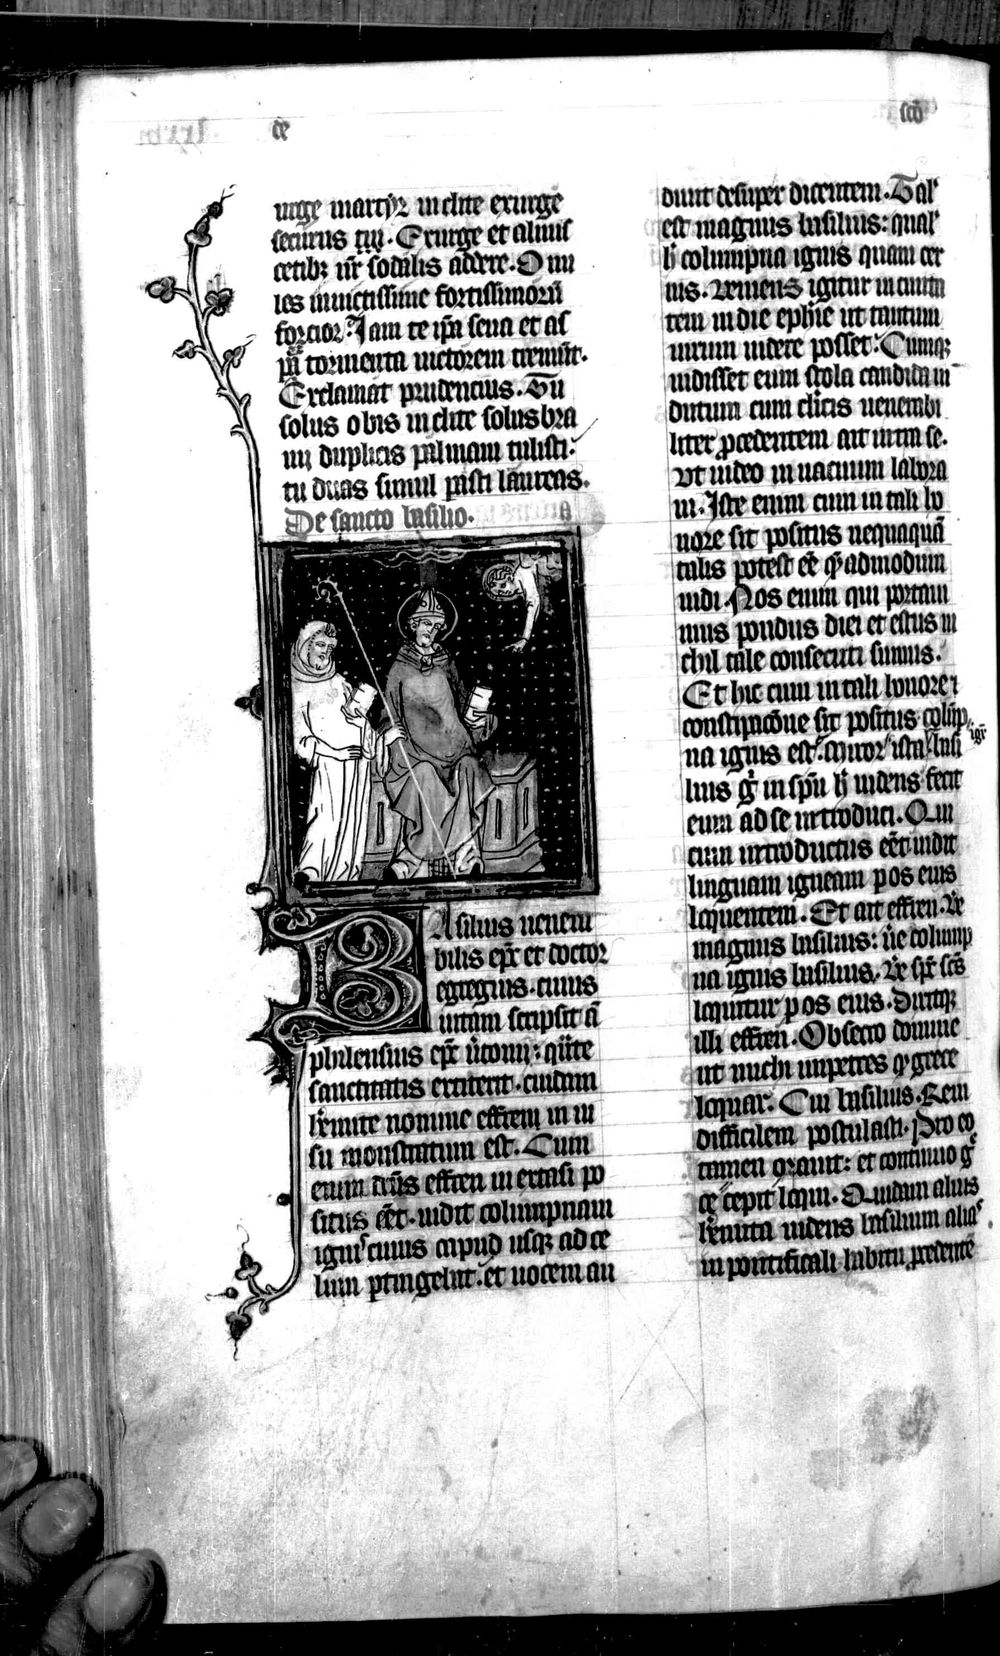 de
urge martyr inclite exurge
securus tui. Exurge et almis
cetibꝫ nr̄ sodalis addere. O mi
les inuictissime fortissimorū
forcior. Iam te ip̄a seua et as
pa tormenta uictorem tremūt.
Exclamat prudencius. Tu
solus o bis inclite solus bra
uij duplicis palmam tulisti.
tu duas simul pasti laureas.
De sancto basilio.
BAsilius uenera
bilis ep̄c et doctor
egregius. cuius
uitam scripsit ā
philensius ep̄c yconij: qn̄te
sanctitatis extiterit. cuidam
h̄emite nomine effrem in ui
su monstratum est. Cum
enim dcūs effren in extasi po
situs eēt. uidit columpnam
ignis cuius capud usqꝫ ad ce
lum ptingebat. et uocem au
sc̄o
diunt desuper dicentem. Tal'
est magnus basilius: qual'
h̄ columpna ignis quam cer
nis. Veniens igitur in ciuita
tem in die ephīe ut tantum
uirum uidere posset. Cumqꝫ
uidisset eum stola candida in
dutum cum cl'icis uenerabi
liter ꝓcedentem ait intra se.
Vt uideo in uacuum labora
ui. Iste enim cum in tali ho
nore sit positus nequaquā
talis potest eē qͥadmodum
uidi. Nos enim qui portaui
mus pondus diei et estus ni
chil tale consecuti sumus.
Et hic cum in tali honore ⁊
constipacōne sit positus colūp
na ignis est. miror ista. basi igr̄
lius g̊ in sp̄u h̄ uidens fecit
eum ad se introduci. Qui
cum introductus eēt. uidit
linguam igneam p os eius
loquentem. Et ait effren. Ve
magnus basilius: ue colump
na ignis basilius. Ve sp̄c sc̄s
loquitur p os eius. Dixitqꝫ
illi effren. Obsecro domine
ut michi impetres qͥ grece
loquar. Cui basilius. Rem
difficilem postulasti. Pro eo
tamen orauit: et continuo g̊
ce cepit loqui. Quidam alius
h̄emita uidens basilium alias
in pontificali habitu ꝓcedentē